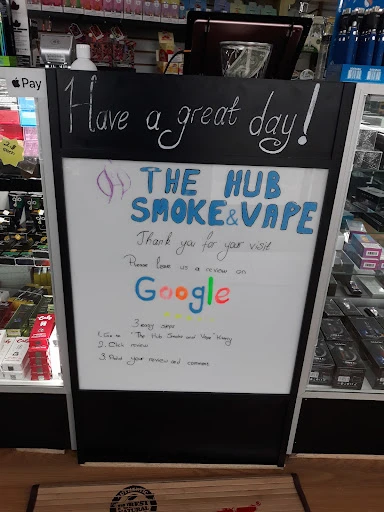 Pay
Have a great day!
THE HUB
SMOKE & VAPE
Thank you for your visit
Please leave us a review on
Google
3 easy steps
1. Go to "The Hub Smoke and Vape"
2. Click review
3. Post your review and comment